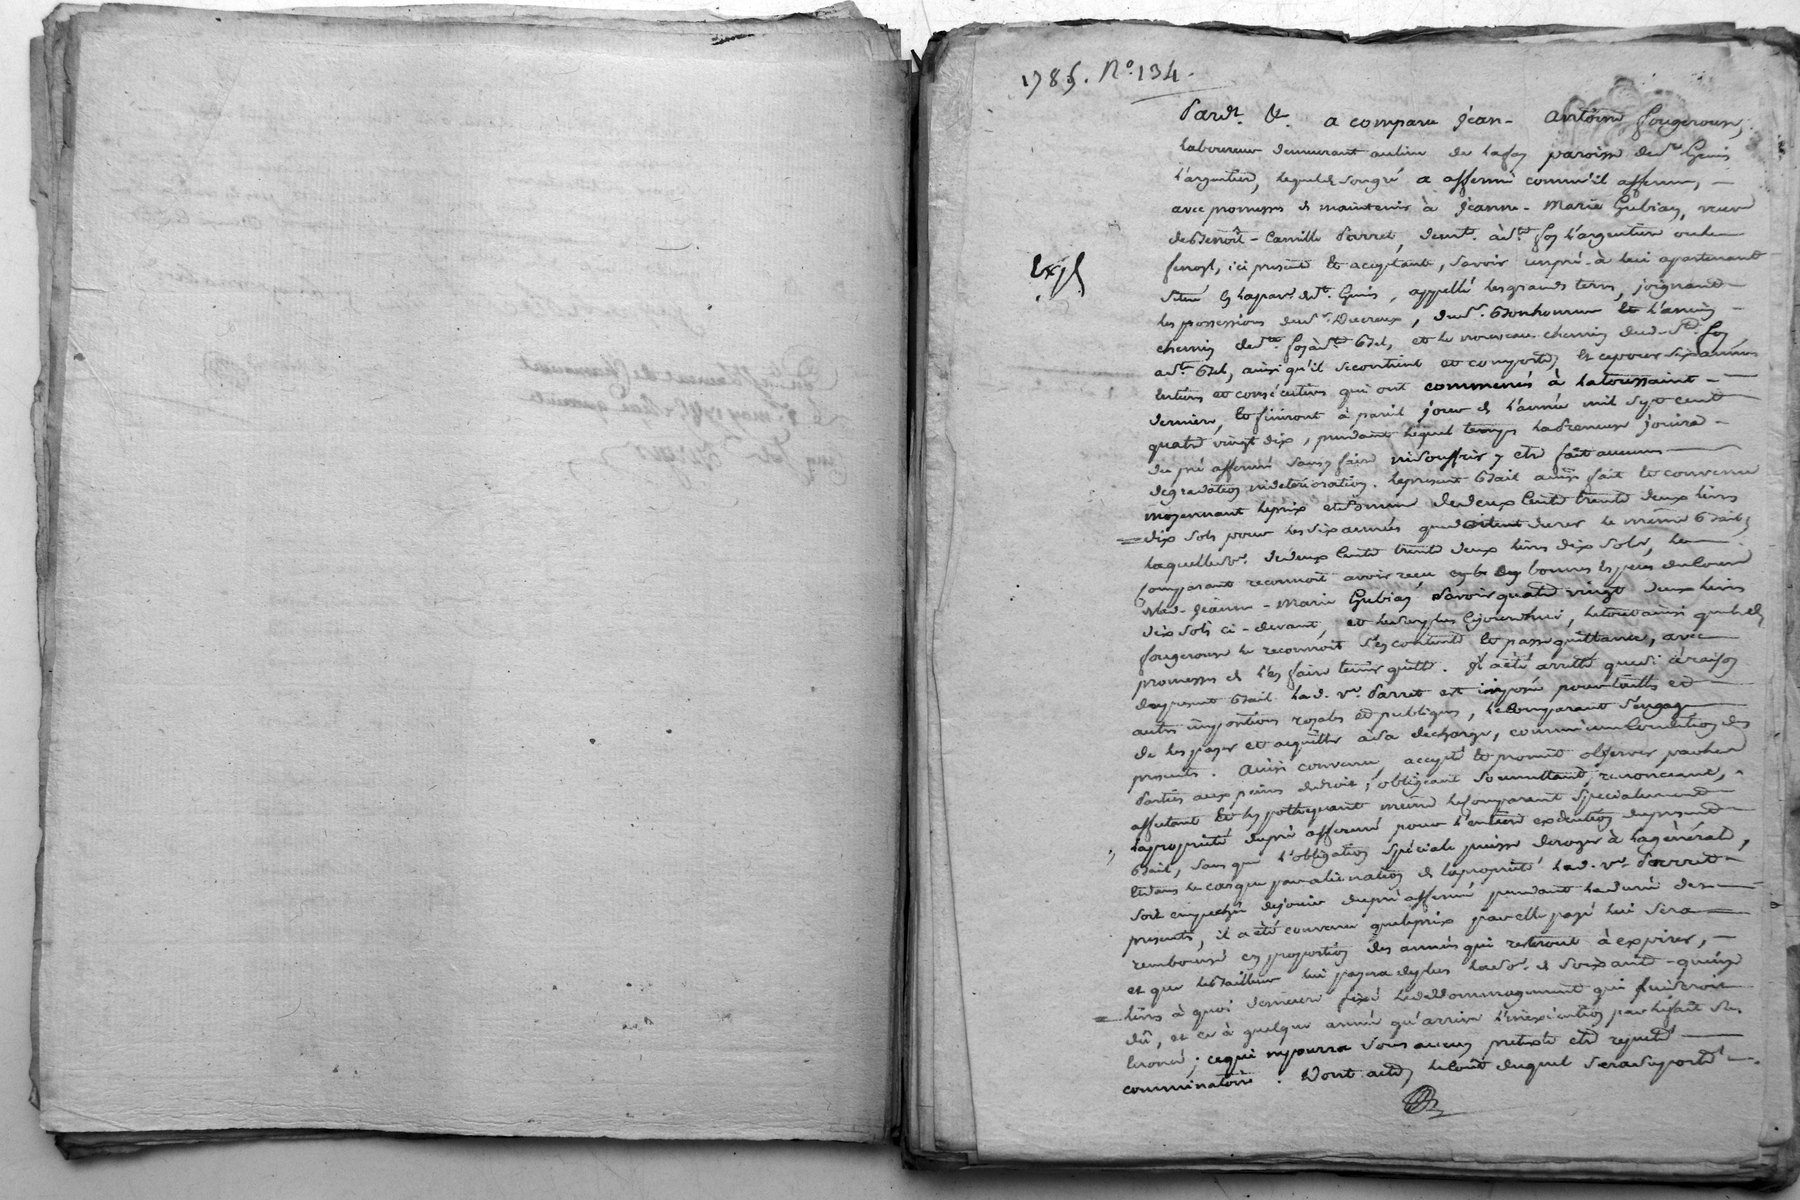 1785. N.º 134.
Pardt. &c. a comparu Jean-Antoine fougerouse,
laboureur demeurant au lieu de lafay paroisse de St. Genis
l'argentiere, lequel de son gré a affermé comm'il afferme,
avec promesses de maintenir à Jeanne-Marie Gubian, veuve
de Benoît-Camille Parret, demt. à Ste. foy l'argentiere
ici presente et acceptante, Savoir un pré à lui apartenant
Situé en la par. de St. Genis, appellé les grands terres, joignant
les possessions du Sr. Ducreux, du Sr. Bonhomme et l'ancien
chemin de Ste. foy à St. Bel, et le nouveau chemin dud. Ste. foy
à St. Bel, ainsi qu'il se contient et comporte, Et ce pour Six années
entieres et consécutives qui ont commencés à la toussaint
derniere, et finiront à pareil jour de l'année mil Sept cent
quatre vingt dix, pendant lequel temps la Preneuse jouira
du pré affermé Sans y faire ni Souffrir y etre fait aucune
dégradation ni deterioration. Le present Bail ainsi fait et convenu
moyennant le prix et Somme de deux Cent trente deux livres
dix Sols pour les Six années que doit durer le même Bail,
laquelle Se. de deux Cent trente deux livres dix Sols, le
Comparant reconnoit avoir reçu en bonnes Especes du Cours
de lad. Jeanne-Marie Gubian Savoir quatre vingt deux livres
dix Sols ci-devant, et le Surplus Ejourd'hui, le tout ainsi que led.
fougerouse le reconnoit S'en contente et passe quittance, avec
promesses de l'en faire tenir quitte. Il a été arretté que Si à raison
du present Bail lad. ve. Parret est imposée pour tailles et
autres impositions royales et publiques, le Comparant S'engage
de les payer et acquitter à Sa decharge, comme une Condition des
presentes. Ainsi convenu, accepté et promit observer par les
Parties aux peines de droit; obligeant Soumettant, renonceant,
affectant et hypothequant même le Comparant Spécialement
la proprieté du pré affermé pour l'entiere exécution du present
Bail, Sans que l'obligation Spéciale puisse deroger à la général,
Et dans le cas que par alienation de la proprieté lad. ve. Parret
Soit empechée de jouir du pré affermé pendant la durée des
presentes, il a été convenu que le prix par elle payé lui Sera
remboursé en proportion des années qui resteront à expirer,
et que le Bailleur lui payera de plus la Se. de Soixante-quinze
livres à quoi demeure fixé le dedommagement qui lui Seroit
dû, et ce à quelque année qu'arrive l'inexécution par le fait Sus
énoncé; ce qui ne pourra Sous aucun pretexte etre reputé
comminatoire. Dont acte, le Coût duquel Sera Suporté
Exp.